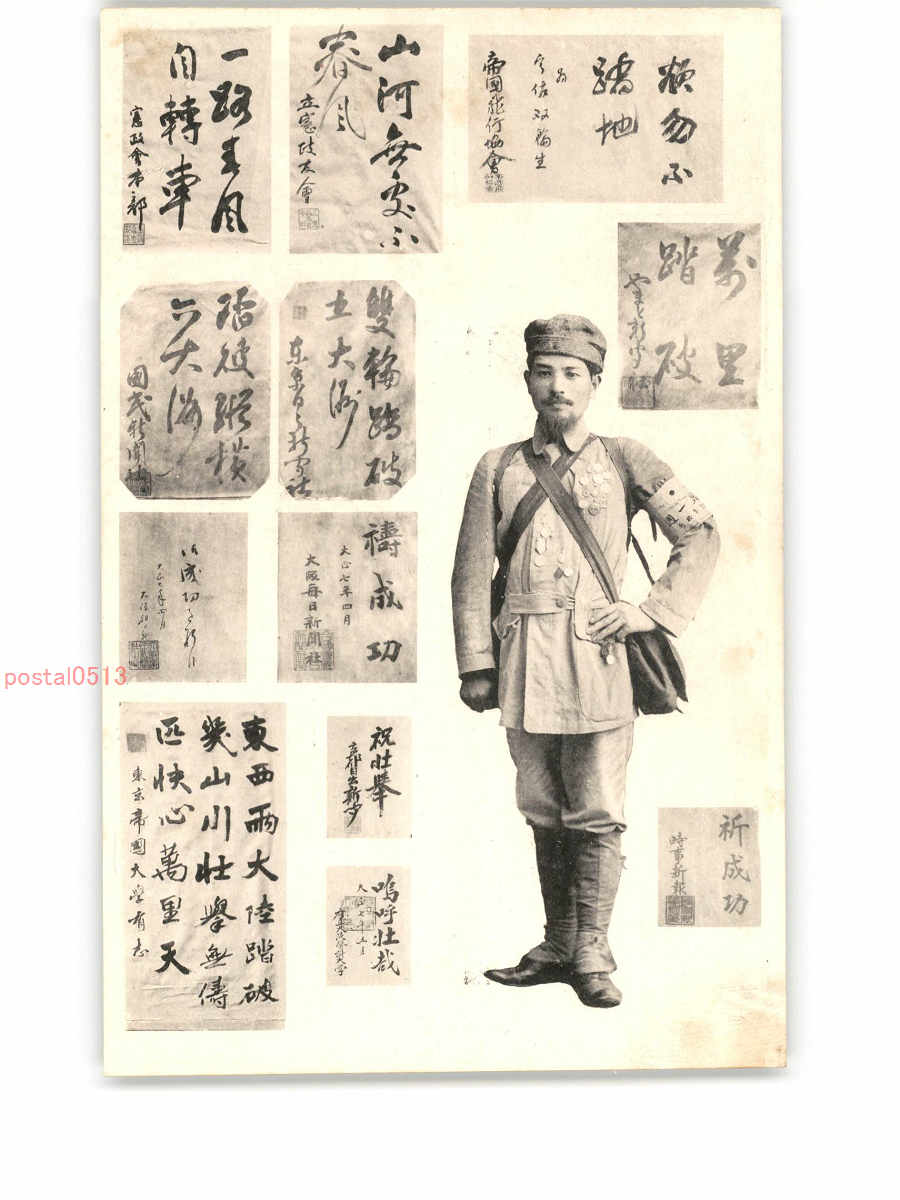 為
帝國飛行協會
山河無處不
春風
立憲政友會
一路春風
自轉車
憲政會本部
萬里
踏破
やまと新聞
雙輪踏破
五大洲
東京日日新聞社
踏破縱橫
六大洲
國民新聞社
禱成功
大正七年四月
大阪每日新聞社
大正七年四月
東西兩大陸踏破
幾山川壯擧無儔
匹快心萬里天
東京帝國大學有志
祝壯擧
京都日出新聞
嗚呼壯哉
祈成功
時事新報
postal0513